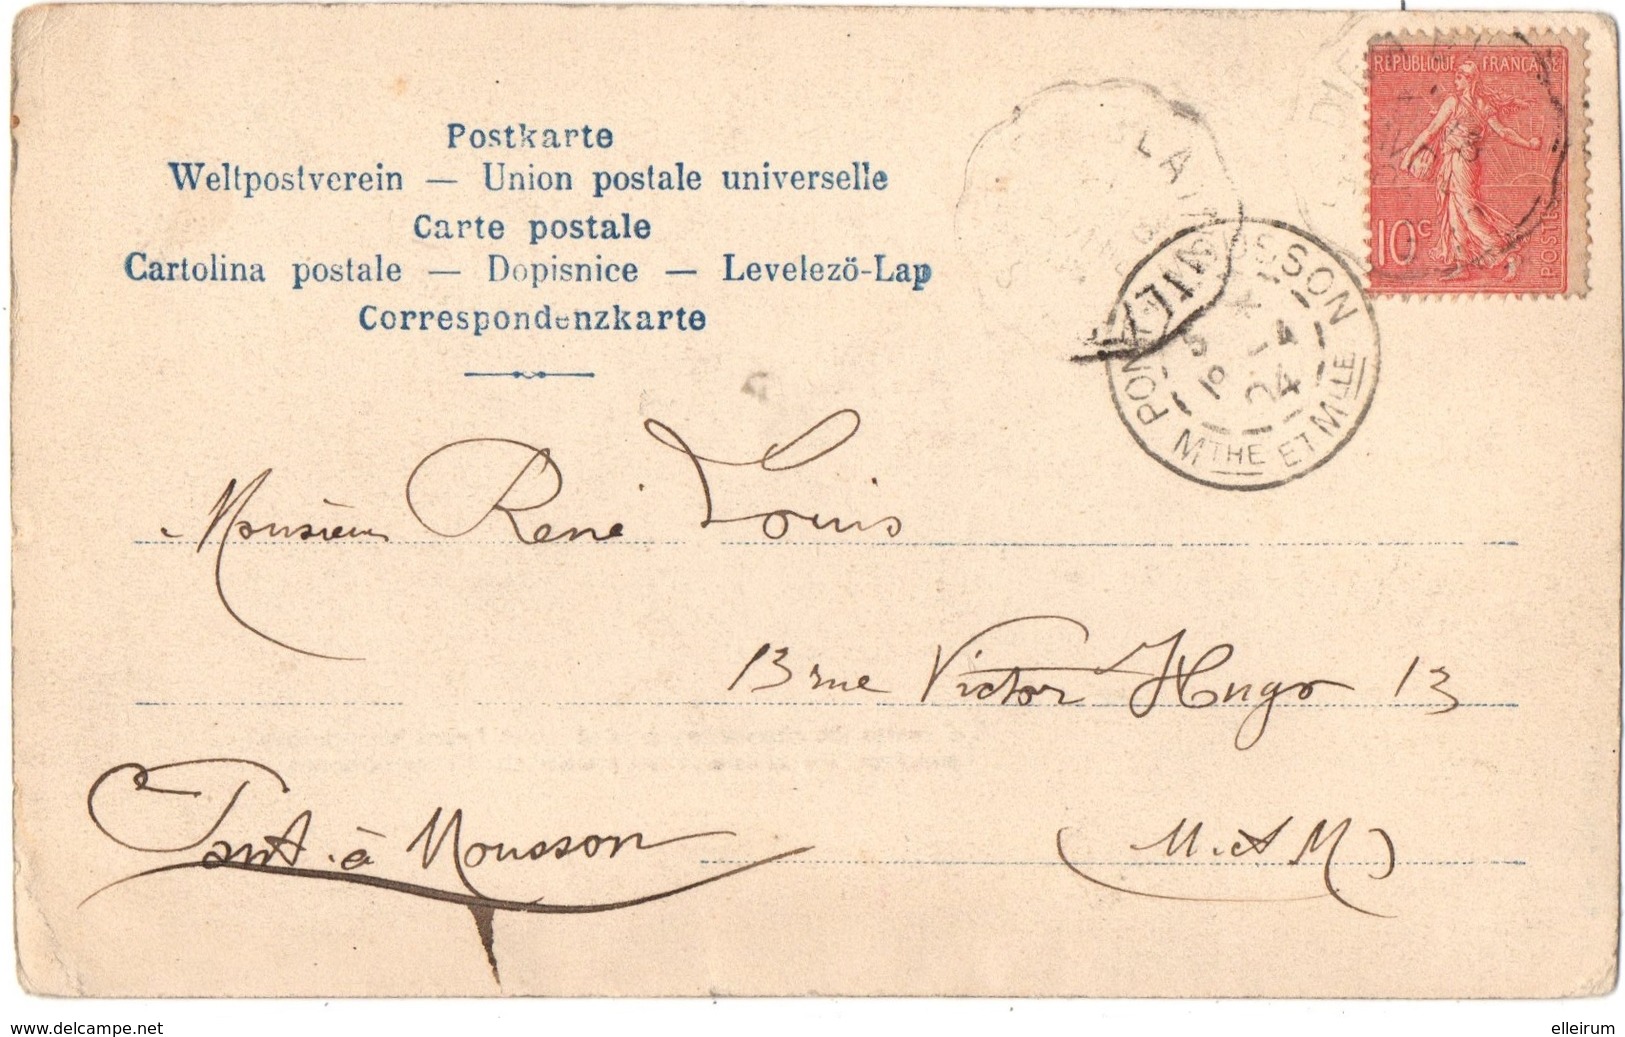 Postkarte
Weltpostverein — Union postale universelle
Carte postale
Cartolina postale — Dopisnice — Levelezö-Lap
Correspondenzkarte
REPUBLIQUE FRANÇAISE
10c
POSTES
PONT-A-MOUSSON
MTHE ET MLLE
04
Monsieur René Louis
13 rue Victor Hugo 13
Pont-à-Mousson (M. et M)
www.delcampe.net
elleirum